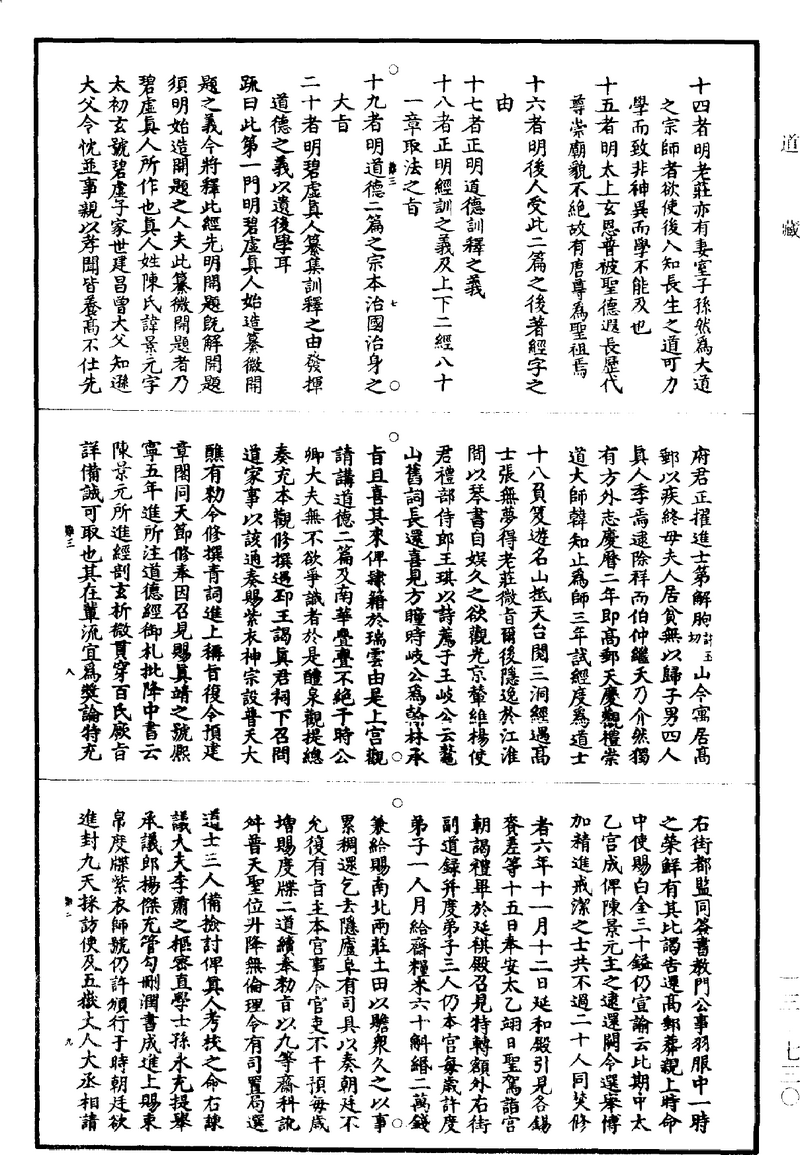 道藏
一三—七三〇
十四者明老莊亦有妻室子孫然為大道
之宗師者欲使後人知長生之道可力
學而致非神異而學不能及也
十五者明太上玄恩普被聖德遐長歷代
尊崇廟貌不絕故有唐尊為聖祖焉
十六者明後人受此二篇之後著經字之
由
十七者正明道德訓釋之義
十八者正明經訓之義及上下二經八十
一章取法之旨
十九者明道德二篇之宗本治國治身之
大旨
二十者明碧虛真人纂集訓釋之由發揮
道德之義以遺後學耳
疏曰此第一門明碧虛真人始造纂微開
題之義今將釋此經先明開題既解開題
須明始造開題之人夫此纂微開題者乃
碧虛真人所作也真人姓陳氏諱景元字
太初玄號碧虛子家世建昌曾大父知遜
大父令忱並事親以孝聞皆養高不仕先
府君正擢進士第解朐許玉切山令寓居高
郵以疾終母夫人居貧無以歸子男四人
真人季焉逮除祥而伯仲繼夭乃介然獨
有方外志慶曆二年即高郵天慶觀禮崇
道大師韓知止為師三年試經度為道士
十八負笈遊名山抵天台閱三洞經遇高
士張無夢得老莊微旨爾後隱逸於江淮
間以琴書自娛久之欲觀光京輦維楊使
君禮部侍郎王琪以詩薦于王岐公云鼇
山舊詞長還喜見方瞳時岐公為翰林承
旨且喜其來俾隸籍於瑞雲由是上宮觀
請講道德二篇及南華亹亹不絕于時公
卿大夫無不欲爭識者於是醴泉觀提總
奏充本觀修撰遇郢王謁真君祠下召問
道家事以該通奏賜紫衣神宗設普天大
醮有勑令修撰青詞進上稱旨復令預建
章閣同天節修奉因召見賜真靖之號熙
寧五年進所注道德經御札批降中書云
陳景元所進經剖玄析微貫穿百氏厥旨
詳備誠可取也其在輩流宜為獎論特充
右街都監同簽書教門公事羽服中一時
之榮鮮有其比謁告還高郵葬親上時命
中使賜白金三十鎰仍宣諭云比期中太
乙宮成俾陳景元主之逮還闕令選舉博
加精進戒潔之士共不過二十人同焚修
者六年十一月十二日延和殿引見各錫
賚差等十五日奉安太乙翊日聖駕詣宮
朝謁禮畢於延祺殿召見特轉額外右街
副道錄升度弟子三人仍本宮每歲許度
弟子一人月給齋糧米六十斛緡二萬錢
兼給賜南北兩莊土田以贍衆久之以事
累稠還乞去隱廬阜有司具以奏朝廷不
允復有旨主本宮事令官吏不干預每歲
增賜度牒二道續奉勑旨以九等齋科訛
舛普天聖位升降無倫理令有司置局選
道士三人備撿討俾真人考校之命右諫
議大夫李肅之樞密直學士孫永充提舉
承議郎楊傑充管勾刪潤書成進上賜束
帛度牒紫衣師號仍許頒行于時朝廷欲
進封九天採訪使及五嶽丈人大丞相請